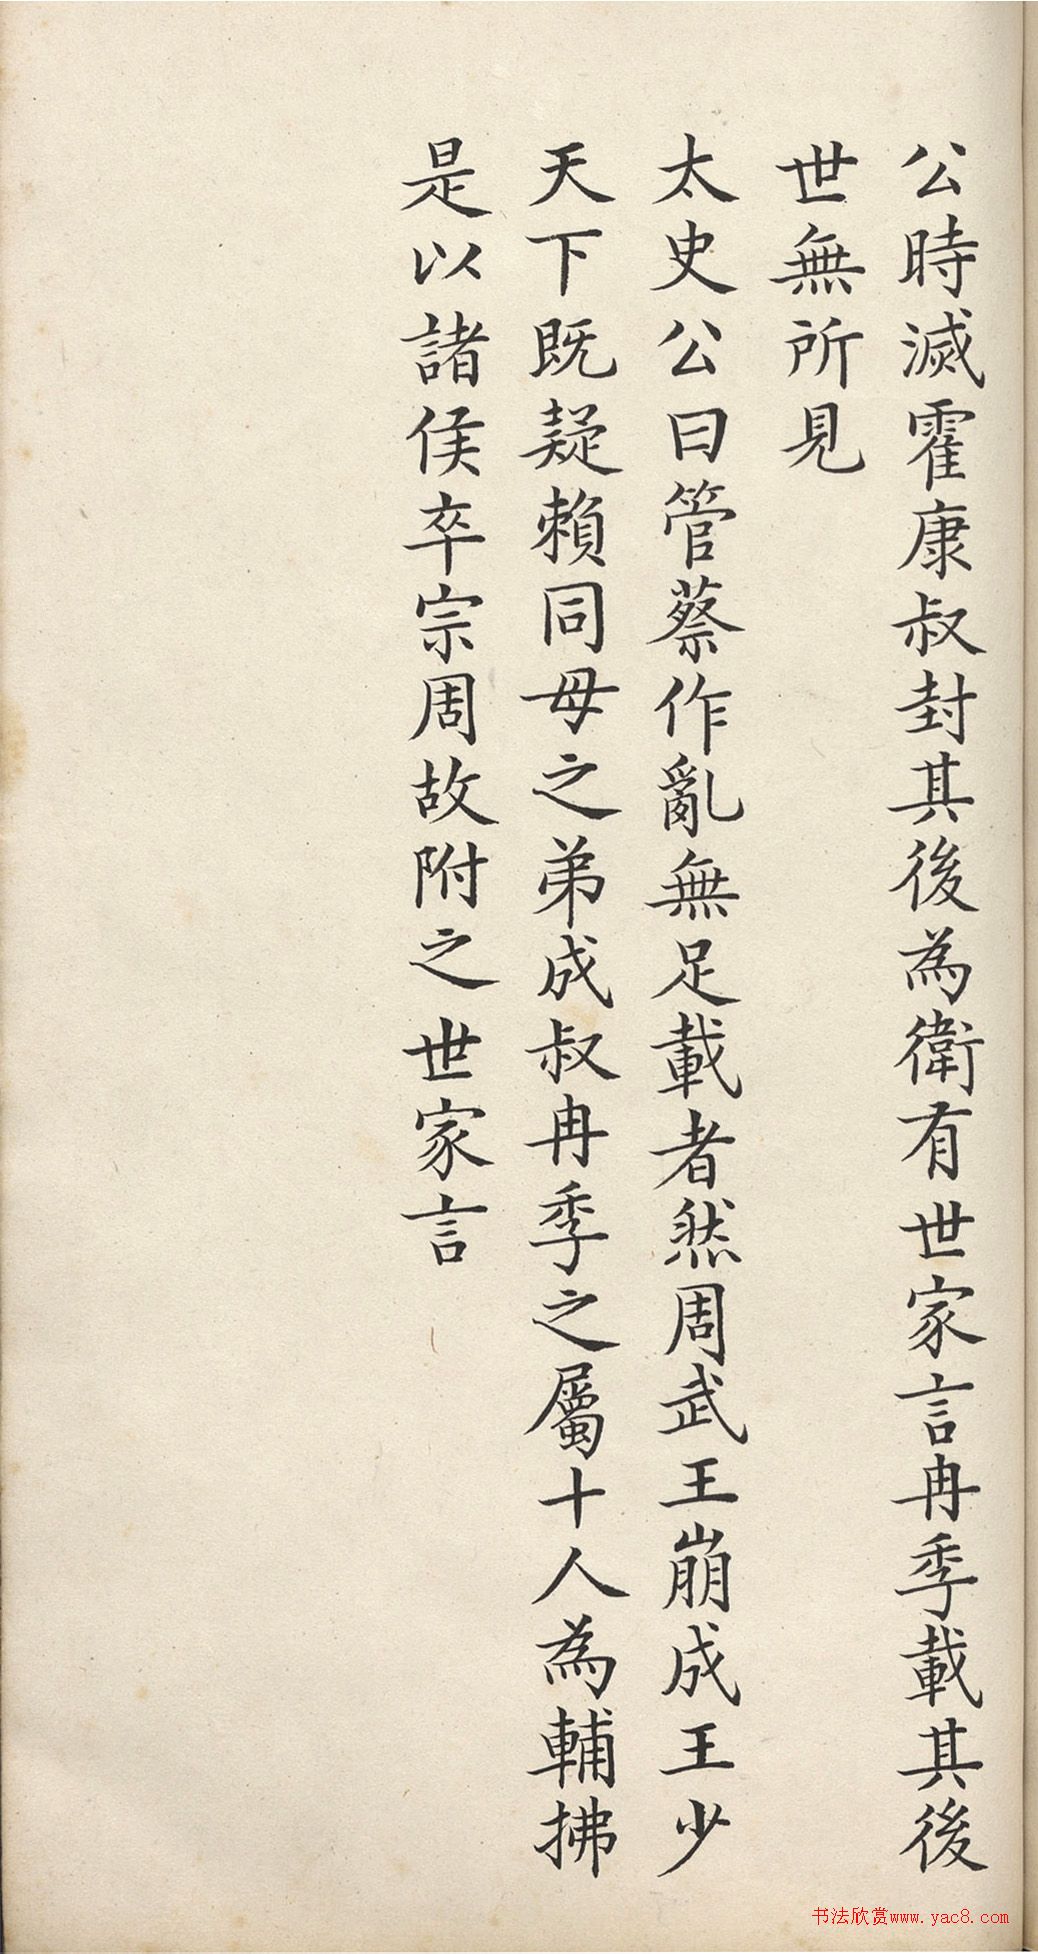 公時滅霍康叔封其後為衛有世家言冉季載其後
世無所見
太史公曰管蔡作亂無足載者然周武王崩成王少
天下既疑賴同母之弟成叔冉季之屬十人為輔拂
是以諸侯卒宗周故附之世家言
书法欣赏www.yac8.com